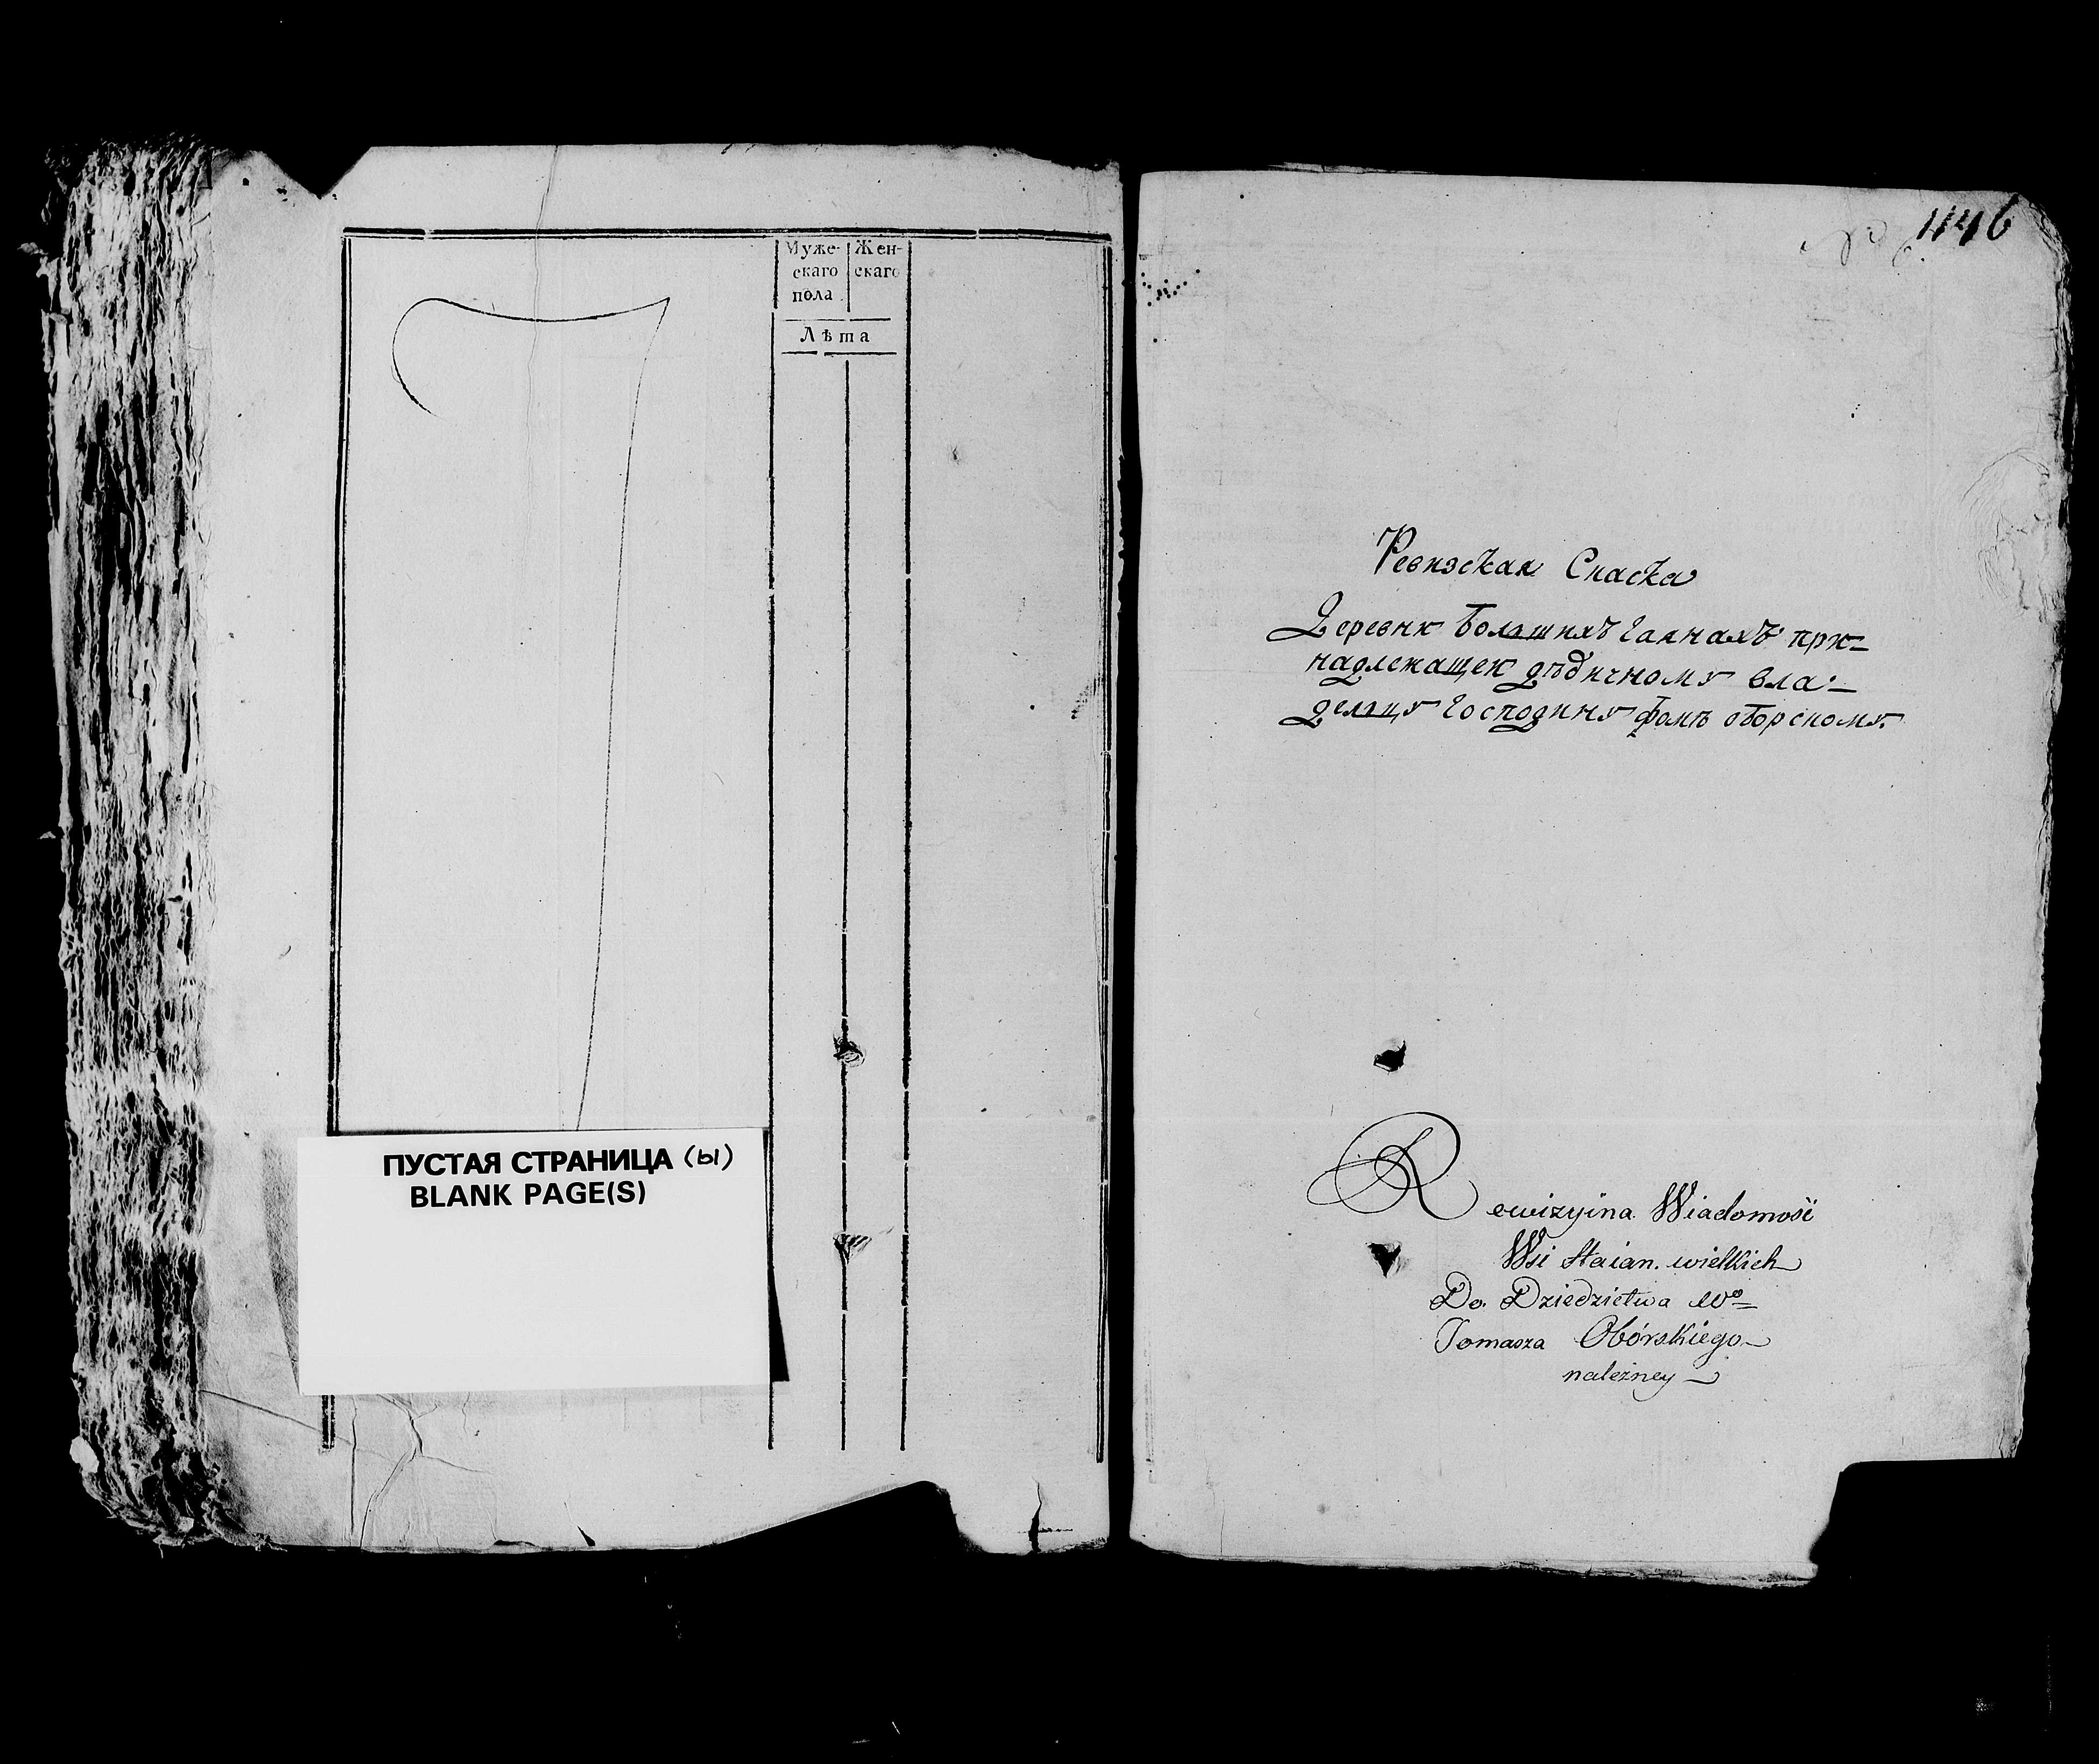 Муже-
скаго
пола
Жен-
скаго
Лѣта
ПУСТАЯ СТРАНИЦА (ы)
BLANK PAGE(S)
446
Ревизская Сказка
Деревни Большихъ Гаянахъ при-
надлежащей дѣдичному вла-
дельцу Господину Фомѣ оборскому.
Rewizyina Wiadomość
Wsi Haian wielkich
Do Dziedzictwa Wo
Tomasza Obórskiego
należney